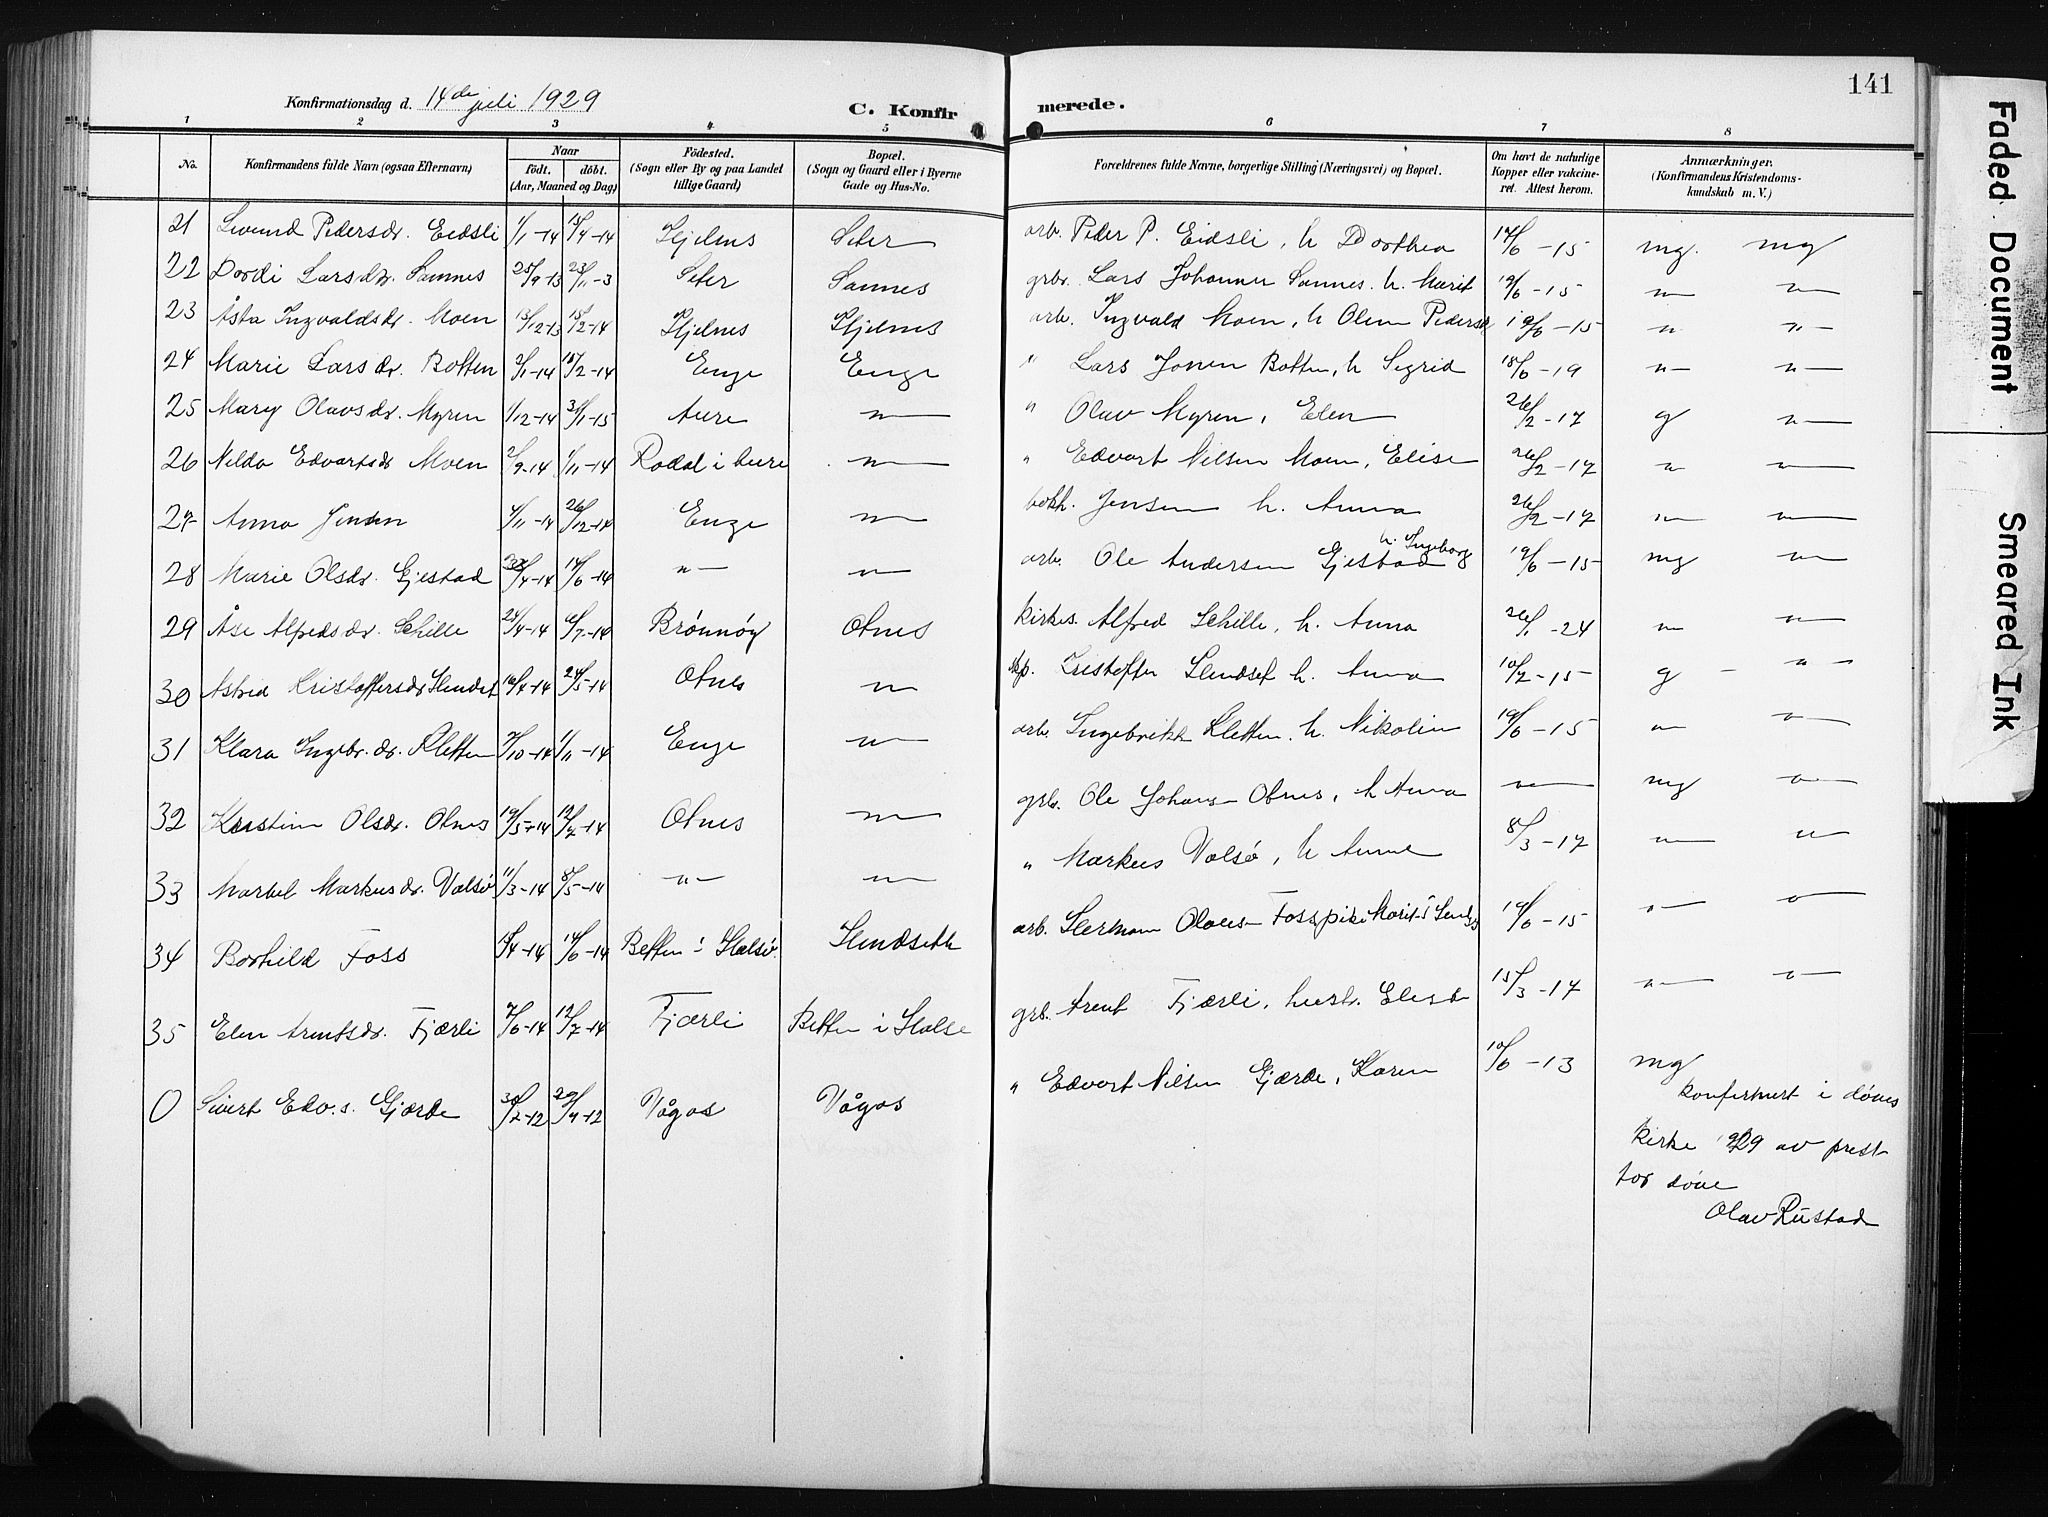 141
Konfirmationsdag d. 14de juli 1929
C. Konfirmerede.
1 2 3 4 5 6 7 8
No.
Konfirmandens fulde Navn (ogsaa Efternavn)
Naar
født. døbt.
(Aar, Maaned og Dag)
Fødested.
(Sogn eller By og paa Landet
tillige Gaard)
Bopæl.
(Sogn og Gaard eller i Byerne
Gade og Hus-No.
Forældrenes fulde Navne, borgerlige Stilling (Næringsvei) og Bopæl.
Om havt de naturlige
Kopper eller vakcine-
ret. Attest herom.
Anmærkninger.
(Konfirmandens Kristendoms-
kundskab m. V.)
21 Pedersdr. Eidsli 1/1-14 13/4-14 Seter arb. Peder P. Eidsli, h Dorthea 17/6-15 mg. mg
22 Dordi Larsdr. Sannes 25/9-13 23/11-3 Seter Sannes grbr. Lars Johannes Sannes. h. Marit 19/6-15 " "
23 Åsta Ingvaldsdr. Moen 13/12-13 15/2-14 arb. Ingvald Moen, h Olem Pedersd 19/6-15 " "
24 Marie Larsdr. Botten 2/1-14 15/2-14 Enge Enge " Lars Jonsen Botten, h Sigrid 18/6-19 " "
25 Mary Olavsdr. Myren 1/12-14 31/1-15 Aure " " Olav Myren, Elen 26/2-17 g "
26 Nilda Edvartsdr Moen 2/9-14 1/11-14 Rodal i Aure " " Edvart Nilsen Moen, Elise 26/2-17 " "
27 Anna Jensen 4/11-14 26/12-14 Enge " bokh. Jensen h. Anna 26/2-17 " "
28 Marie Olsdr. Gjestad /4-14 14/6-14 " " arb. Ole Andersen Gjestad h. Ingeborg 19/6-15 mg "
29 Åse Alfredsdr. Schille 23/4-14 /7-14 Brønnøy Otnes kirkes. Alfred Schille, h. Anna 26/1-24 " "
30 Astrid Kristoffersdr Slendset 16/4-14 24/5-14 Otnes " Kristoffer Slendset h. Anna 10/2-15 g "
31 Klara Ingebr.dr. Kletten 7/10-14 1/11-14 Enge " arb. Ingebrikt Kletten, h. Nikolin 19/6-15 " "
32 Kristine Olsdr. Otnes 19/5-14 12/7-14 Otnes " grb. Ole Johans- Otnes, h Anna " mg "
33 Markusdr. Valsø 11/3-14 8/5-14 " " " Markus Valsø, h Anne 8/3-17 " "
34 Borhild Foss /4-14 14/6-14 Betten i Halsø Slendseth arb. Herman Olaus- Foss, pike Marit 19/6-15 " "
35 Elen Arentsdr. Fjærli 7/6-14 12/7-14 Fjærli Betten i Halse grb. Arent Fjærli, hust. 15/3-17 " "
0 Sivert Edv.s. Gjærde 30/2-12 29/4-12 Vågos Vågos " Edvart Nilsen Gjærde, Karen 10/6-13 mg
konfirmert i døves
kirke 1929 av prest
for døve
Olav Rustad
Faded Document
Smeared Ink